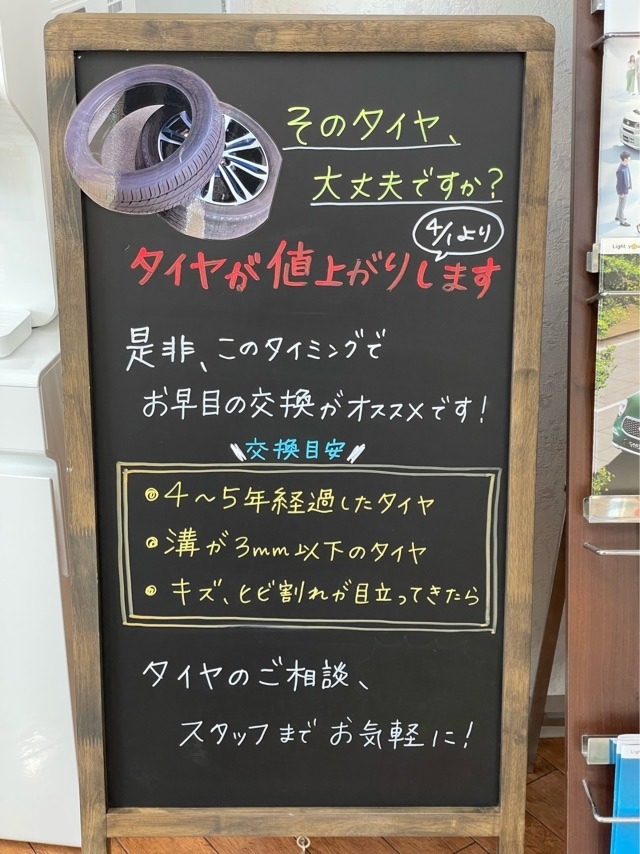 そのタイヤ、
大丈夫ですか?
4/1より
タイヤが値上がりします
是非、このタイミングで
お早目の交換がオススメです!
交換目安
4~5年経過したタイヤ
溝が3mm以下のタイヤ
キズ、ヒビ割れが目立ってきたら
タイヤのご相談、
スタッフまでお気軽に!